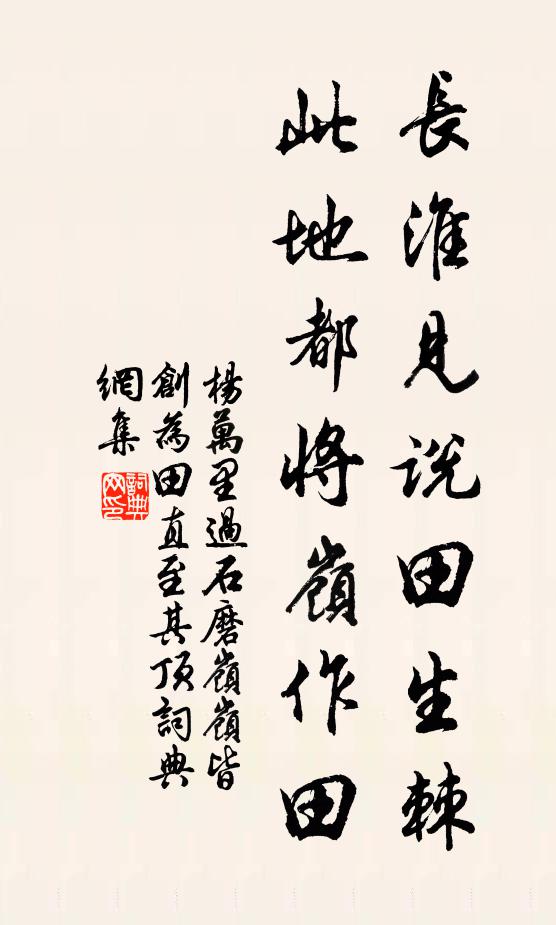 長淮見説田生棘
此地都將嶺作田
楊萬里過石磨嶺嶺皆
創為田直至其頂詞典
網集
詞典
网印